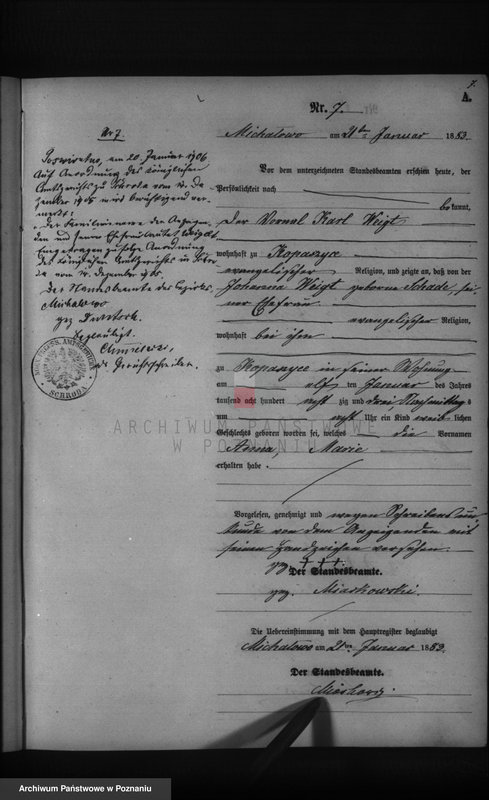 7.
A.
Nr. 7.
Michalowo am 21ten Januar 1883.
Vor dem unterzeichneten Standesbeamten erschien heute, der
Persönlichkeit nach
bekannt,
der Vornal Karl Weigt
wohnhaft zu Kopaszyce
evangelischer Religion, und zeigte an, daß von der
Johanna Weigt geborene Schade, sei
ner Ehefrau
evangelischer Religion,
wohnhaft bei ihm
zu Kopaszyce in seiner Wohnung
am elf ten Januar des Jahres
tausend acht hundert acht zig und drei, Nachmittags
um acht Uhr ein Kind weib lichen
Geschlechts geboren worden sei, welches die Vornamen
Anna, Marie
erhalten habe.
Vorgelesen, genehmigt und wegen Schreibens un
kunde von dem Anzeigenden mit
seinem Handzeichen versehen.
+++
Der Standesbeamte.
gez. Miaskowski.
Die Uebereinstimmung mit dem Hauptregister beglaubigt
Michalowo am 21ten Januar 1883.
Der Standesbeamte.
No 7.
am 20. Januar 1906
Auf Anordnung des Königlichen
Amtsgerichts zu Schroda vom
wird berichtigend ver
merkt:
der Familienname der
den und seiner Ehefrau lautet Weigt
Eingetragen zufolge Anordnung
des Königlichen Amtsgerichts in Schro
da vom Dezember 1905.
Der Standesbeamte des Bezirks
Michalowo
gez.
Beglaubigt.
Gerichtsschreiber.
KÖNIGL. PREUSS. AMTSGERICHT
SCHRODA
ARCHIWUM PAŃSTWOWE
W POZNANIU
Archiwum Państwowe w Poznaniu